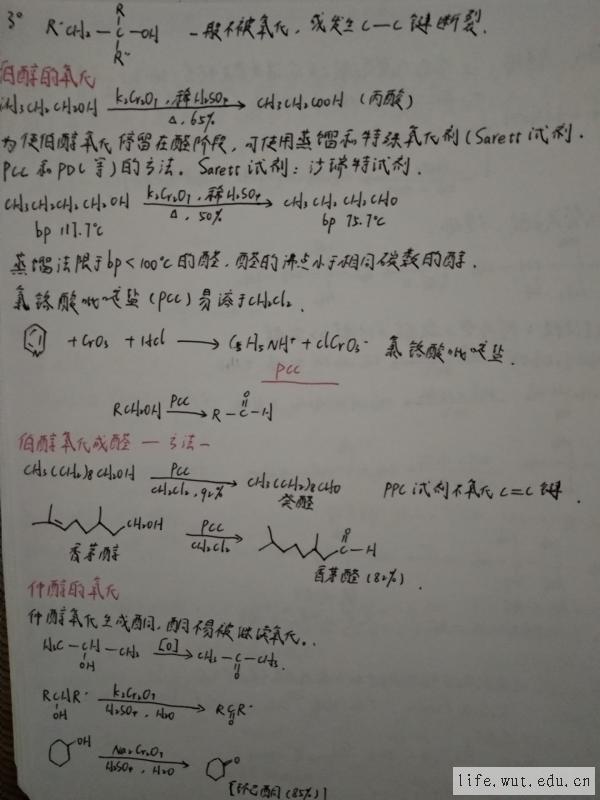 3° R'CH₂—C(R)(R'')—OH 一般不被氧化,或发生C—C键断裂.
伯醇的氧化
CH₃CH₂CH₂OH K₂Cr₂O₇,稀H₂SO₄ △,65% → CH₃CH₂COOH (丙酸)
为使伯醇氧化停留在醛阶段,可使用蒸馏和特殊氧化剂(Sarett试剂.
PCC和PDC等)的方法. Sarett试剂:沙瑞特试剂.
CH₃CH₂CH₂CH₂OH K₂Cr₂O₇,稀H₂SO₄ △,50% → CH₃CH₂CH₂CHO
bp 117.7℃ bp 75.7℃
蒸馏法限于bp<100℃的醛,醛的沸点小于相同碳数的醇.
氯铬酸吡啶盐(PCC)易溶于CH₂Cl₂.
+CrO₃ +HCl → C₅H₅NH⁺ + ClCrO₃⁻ 氯铬酸吡啶盐.
PCC
RCH₂OH PCC → R—C(=O)—H
伯醇氧化成醛—方法一
CH₃(CH₂)₈CH₂OH PCC CH₂Cl₂,92% → CH₃(CH₂)₈CHO PPC试剂不氧化C=C键.
癸醛
CH₂OH PCC CH₂Cl₂ → C(=O)—H
香茅醇 香茅醛(82%).
仲醇的氧化
仲醇氧化生成酮,酮不易被继续氧化..
H₃C—CH(OH)—CH₃ [O] → CH₃—C(=O)—CH₃.
RCHR' (OH) K₂Cr₂O₇ H₂SO₄,H₂O → RCR' (=O)
OH Na₂Cr₂O₇ H₂SO₄,H₂O → O
[环己酮(85%)]
life.wut.edu.cn